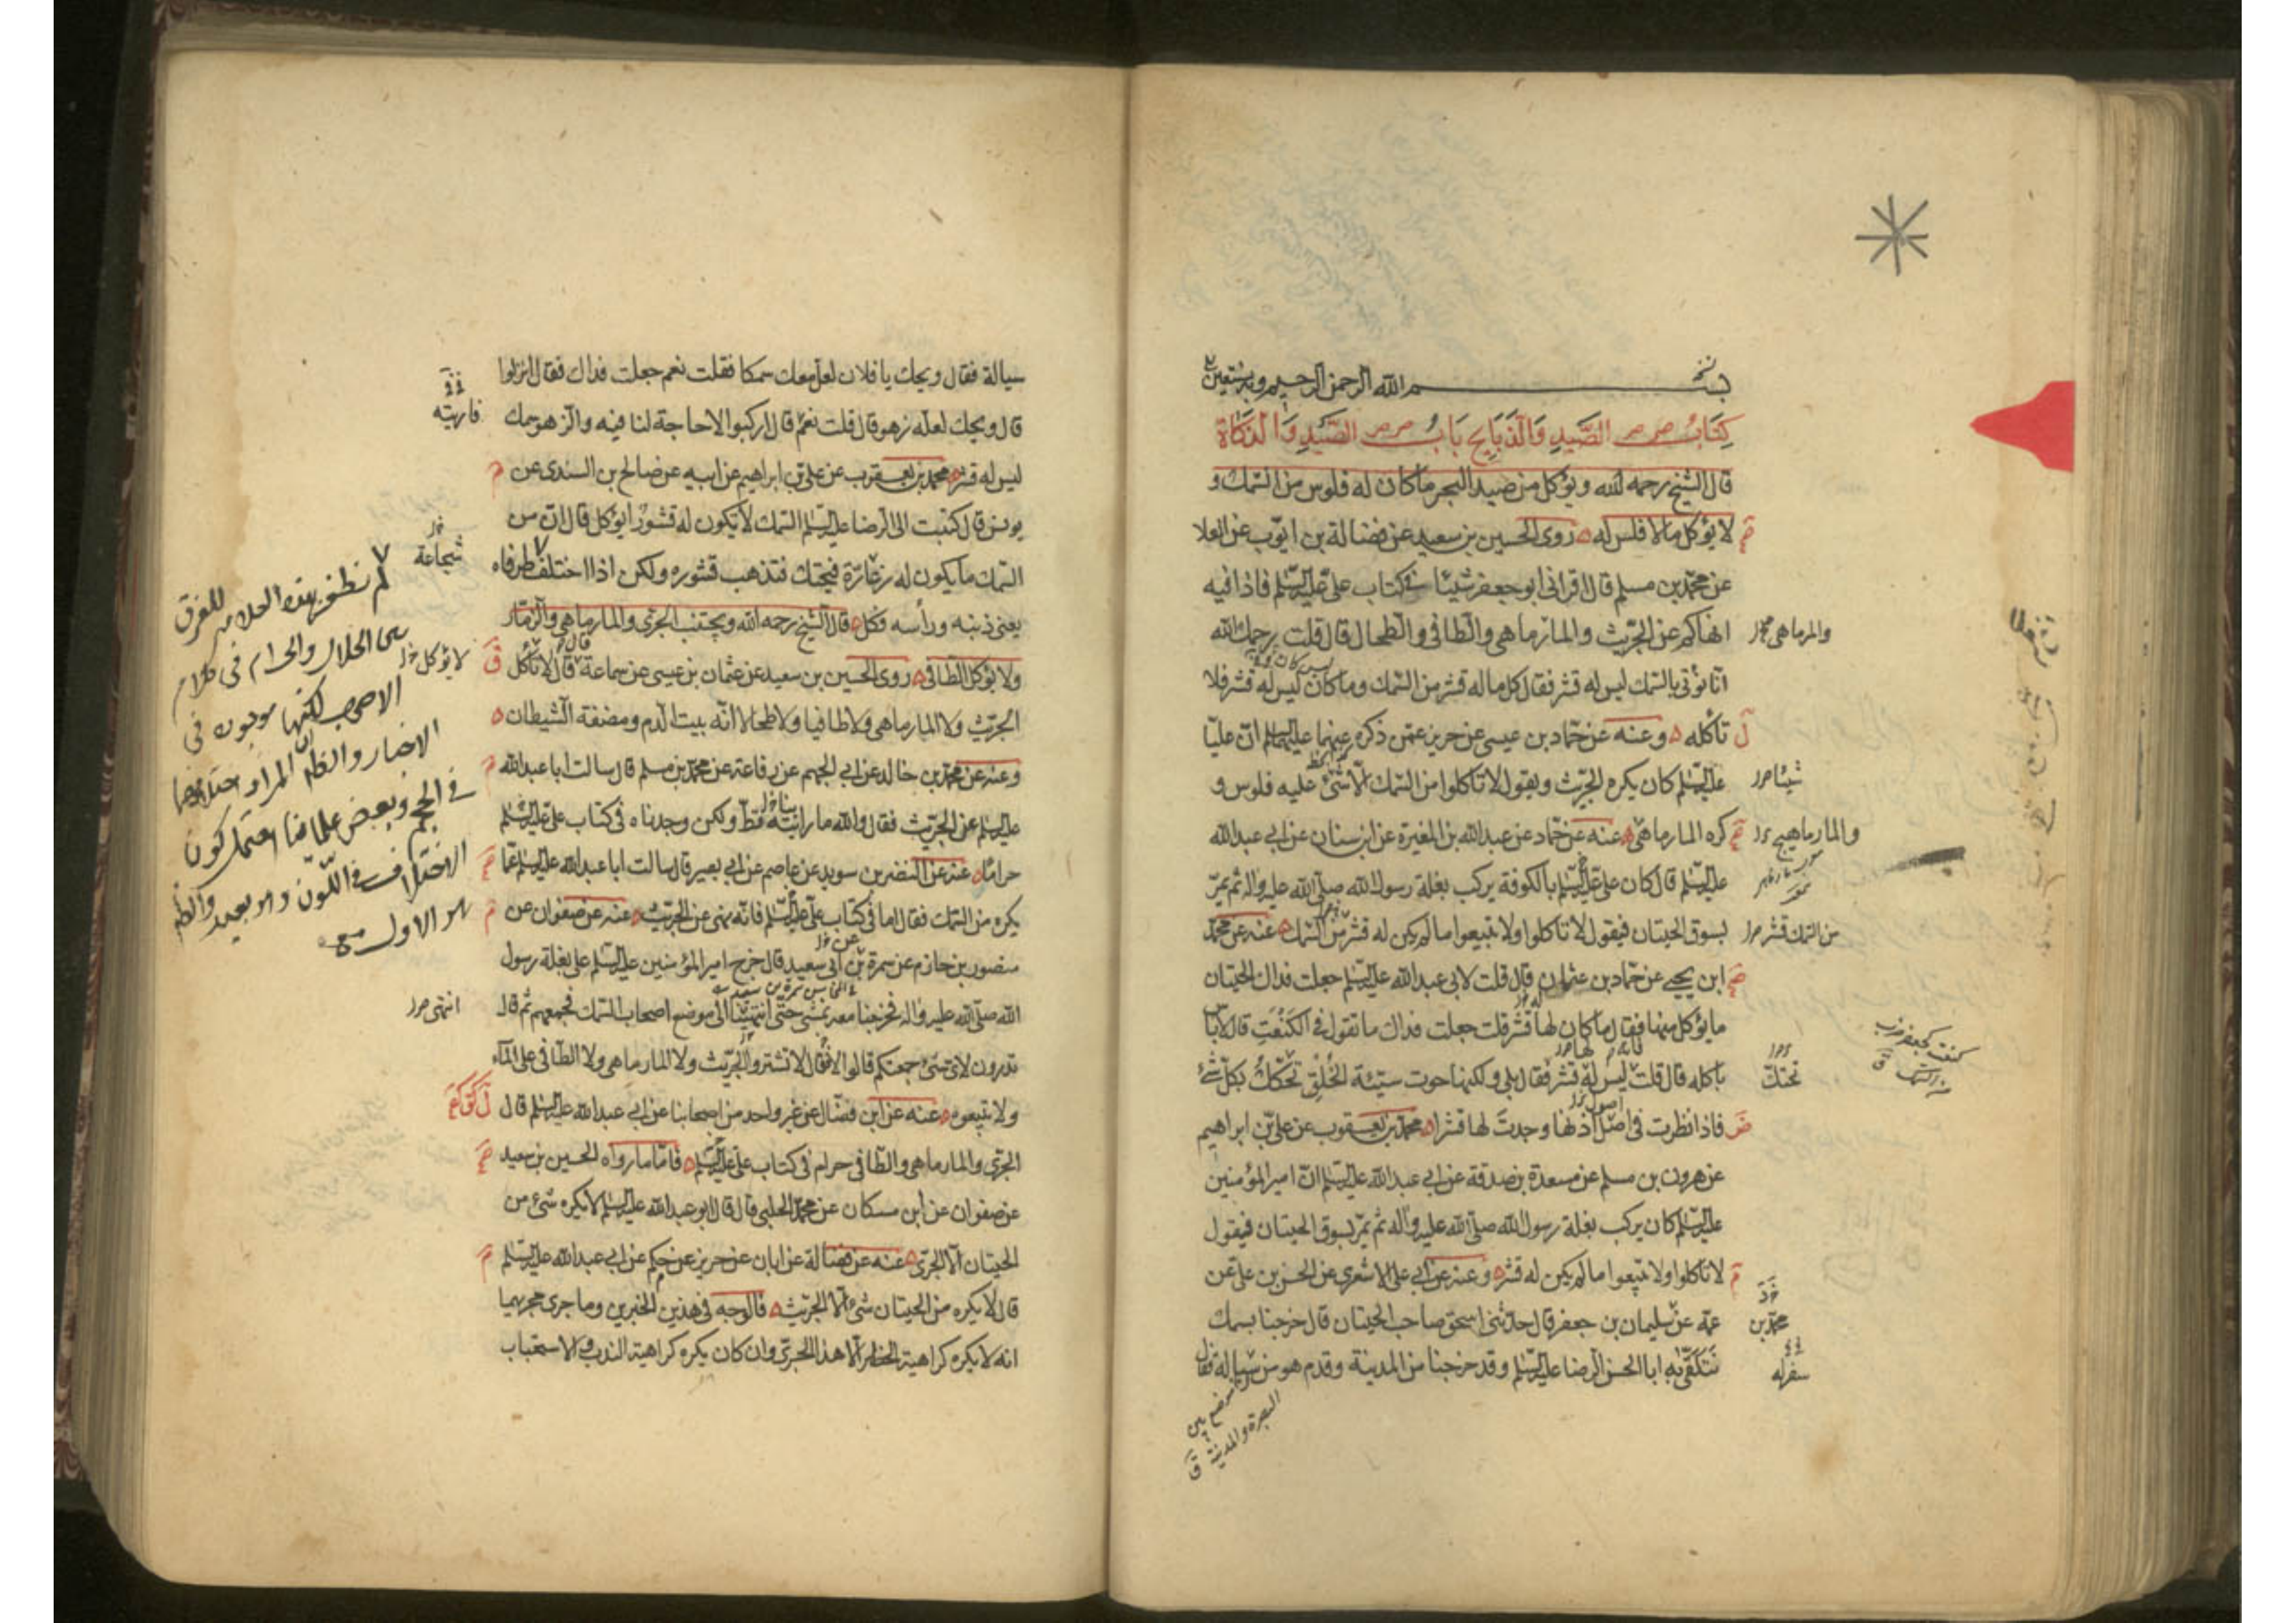 بسم الله الرحمن الرحيم وبه نستعين
كتاب الصيد والذبايح باب الصيد والذكاة
قال الشيخ رحمه الله ويؤكل من صيد البحر ما كان له فلوس من السمك و
لا يؤكل ما لا فلس له روى الحسين بن سعيد عن فضالة بن ايوب عن العلا
عن محمد بن مسلم قال اقرانى ابو جعفر شيئا فى كتاب على عليه السلم فاذا فيه
انهاكم عن الجريث والمارماهى والطافى والطحال قال قلت رحمك الله
انا نؤتى بالسمك ليس له قشر فقال كل ما له قشر من السمك وما كان ليس له قشر فلا
تأكله وعنه عن حماد بن عيسى عن حريز عمن ذكره عنهما عليهما السلم ان عليا
عليه السلم كان يكره الجريث ويقول لا تاكلوا من السمك الا شئ عليه فلوس و
كره المارماهى عنه عن حماد عن عبدالله بن المغيرة عن ابن سنان عن ابى عبدالله
عليه السلم قال كان على عليه السلم بالكوفة يركب بغلة رسول الله صلى الله عليه واله ثم يمر
بسوق الحيتان فيقول لا تاكلوا ولا تبيعوا ما لم يكن له قشر من السمك عنه عن محمد
ابن يحيى عن حماد بن عثمان قال قلت لابى عبد الله عليه السلم جعلت فداك الحيتان
ما يؤكل منها فقال ما كان لها قشر قلت جعلت فداك ما تقول فى الكنعت قال لا باس
باكله قال قلت ليس له قشر فقال بلى ولكنها حوت سيئة الخلق تحتك بكل شئ
فاذا نظرت فى اصل اذنها وجدت لها قشرا محمد بن يعقوب عن على بن ابراهيم
عن هرون بن مسلم عن مسعدة بن صدقة عن ابى عبدالله عليه السلم ان امير المؤمنين
عليه السلم كان يركب بغلة رسول الله صلى الله عليه واله ثم يمر بسوق الحيتان فيقول
لا تاكلوا ولا تبيعوا ما لم يكن له قشر وعنه عن ابى على الاشعرى عن الحسن بن على عن
عمه عن سليمان بن جعفر قال حدثنى اسحق صاحب الحيتان قال خرجنا بسمك
نتلقى به ابا الحسن الرضا عليه السلم وقد خرجنا من المدينة وقدم هو من سيالة فقال
والمرماهى
شيئا
والمارماهيج
من السمك قشر
تحتك
محمد بن
سفر له
موضع بين
البصرة والمدينة ق
سيالة فقال ويحك يا فلان لعل معك سمكا فقلت نعم جعلت فداك فقال انزلوا
قال ويحك لعله زهو قال قلت نعم قال اركبوا لا حاجة لنا فيه والزهو سمك
ليس له قشر محمد بن يعقوب عن على بن ابراهيم عن ابيه عن صالح بن السندى عن
يونس قال كتبت الى الرضا عليه السلم السمك لا يكون له قشور ايؤكل قال ان من
السمك ما يكون له زعارة فيحتك فتذهب قشوره ولكن اذا اختلف طرفاه
يعنى ذنبه ورأسه فكل قال الشيخ رحمه الله ويجتنب الجرى والمارماهى والزمار
ولا يؤكل الطافى روى الحسين بن سعيد عن عثمان بن عيسى عن سماعة قال لا تأكل
الجريث ولا المارماهى ولا طافيا ولا طحالا انه بيت الدم ومضغة الشيطان
وعنه عن محمد بن خالد عن ابى الجهم عن رفاعة عن محمد بن مسلم قال سالت ابا عبدالله
عليه السلم عن الجريث فقال والله ما رايته قط ولكن وجدناه فى كتاب على عليه السلم
حراما عنه عن النضر بن سويد عن عاصم عن ابى بصير قال سالت ابا عبدالله عليه السلم عما
يكره من السمك فقال اما فى كتاب على عليه السلم فانه نهى عن الجريث عنه عن صفوان عن
منصور بن حازم عن سمرة بن ابى سعيد قال خرج امير المؤمنين عليه السلم على بغلة رسول
الله صلى الله عليه واله فخرجنا معه نمشى حتى انتهينا الى موضع اصحاب السمك فجمعهم ثم قال
تدرون لاى شئ جمعتكم قالوا لا فقال لا تشتروا الجريث ولا المارماهى ولا الطافى على الماء
ولا تبيعوه عنه عن ابن فضال عن غير واحد من اصحابنا عن ابى عبدالله عليه السلم قال
الجرى والمارماهى والطافى حرام فى كتاب على عليه السلم فاما ما رواه الحسين بن سعيد
عن صفوان عن ابن مسكان عن محمد الحلبى قال قال ابو عبدالله عليه السلم لا يكره شئ من
الحيتان الا الجرى عنه عن فضالة عن ابان عن حريز عن حكم عن ابى عبدالله عليه السلم
قال لا يكره من الحيتان شئ الا الجريث فالوجه فى هذين الخبرين وما جرى مجريهما
انه لا يكره كراهية الحظر الا هذا الجرى وان كان يكره كراهية الندب والاستحباب
شجاعة
لا يؤكل
انتهى
لم نظفر بهذه العلامة للفرق
بين الحلال والحرام فى كلام
الاصحاب لكنها موجودة فى
الاخبار والظ ان المراد اختلافهما
فى الحجم وبعض علمائنا احتمل كون
الاختلاف فى اللون وهو بعيد والظ
هو الاول